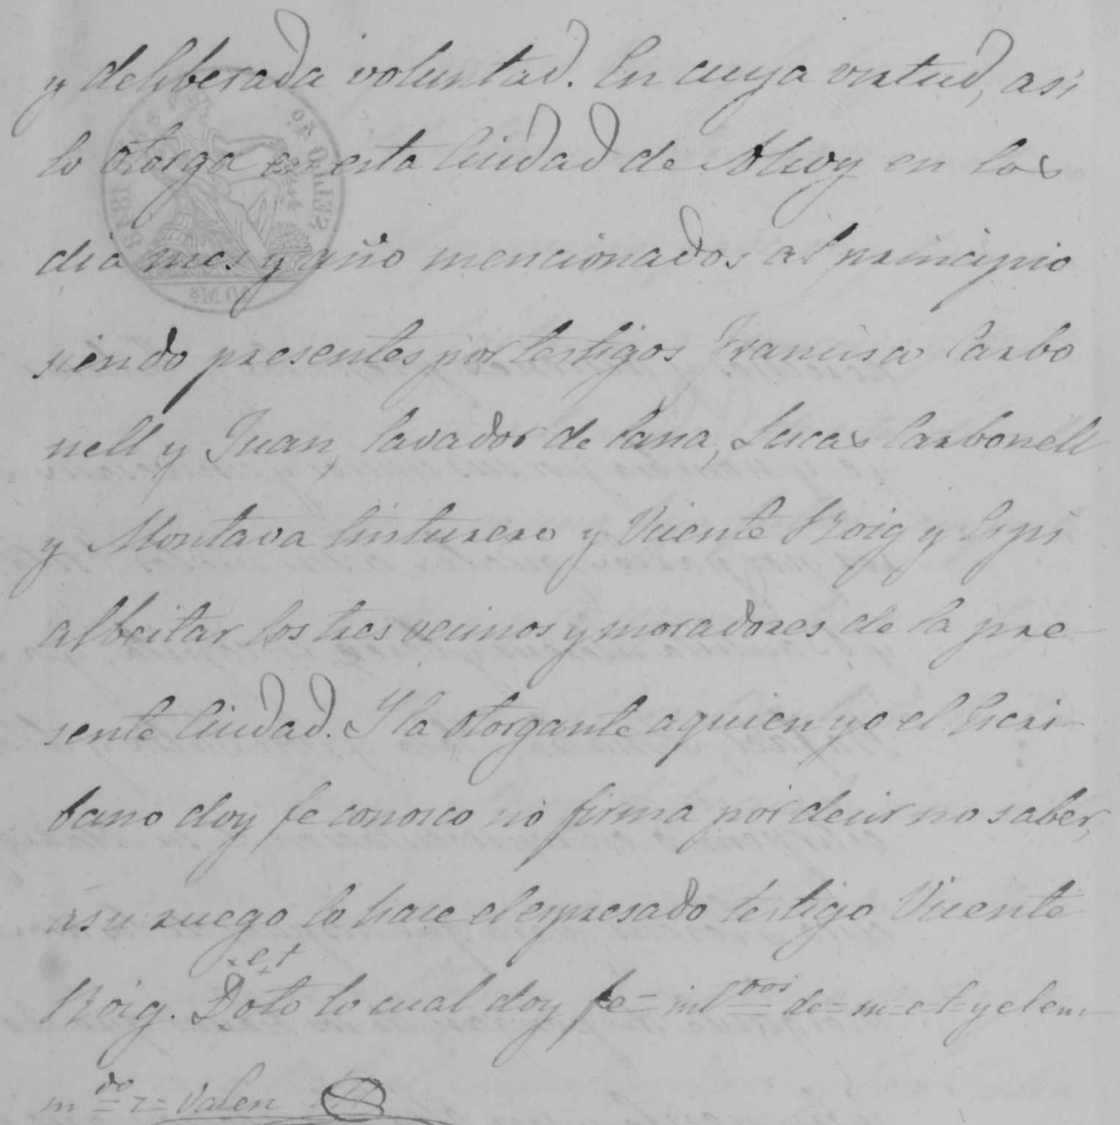 y deliberada voluntad. En cuya virtud, asi
lo otorga en esta Ciudad de Alcoy en los
dia mes y año mencionados al principio
siendo presentes por testigos Francisco Carbo
nell y Juan, lavador de lana, Lucas Carbonell
y Montava tinturero y Vicente Roig y Espi
albeitar los tres vecinos y moradores de la pre-
sente Ciudad. Y la otorgante a quien yo el Escri-
bano doy fe conosco no firma por decir no saber,
a su ruego lo hace el expresado testigo Vicente
Roig. De todo lo cual doy fe =
= Valen